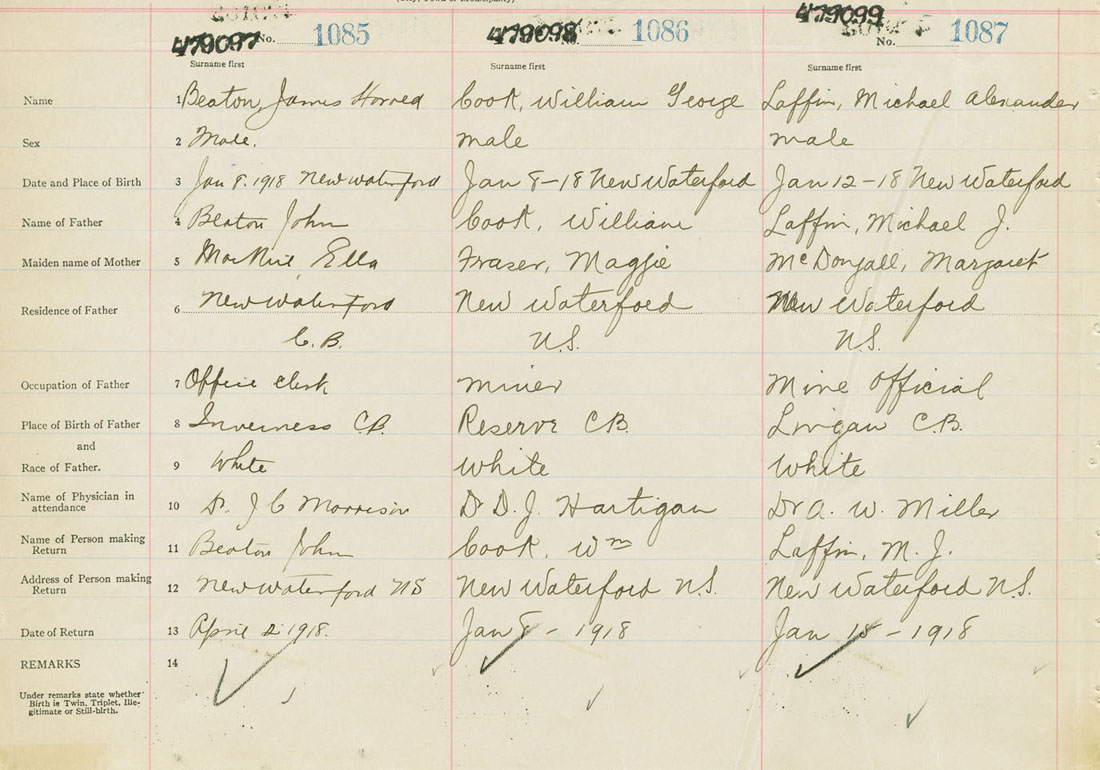 479097 No. 1085 479098 No. 1086 479099 No. 1087
Surname first Surname first Surname first
Name 1 Beaton, James Cook, William George Laffin, Michael Alexander
Sex 2 Male. male male
Date and Place of Birth 3 Jan 8. 1918 New Waterford Jan 8-18 New Waterford Jan 12-18 New Waterford
Name of Father 4 Beaton John Cook, William Laffin, Michael J.
Maiden name of Mother 5 Ella Fraser, Maggie McDougall, Margaret
Residence of Father 6 New Waterford New Waterford New Waterford
C.B. N.S. N.S.
Occupation of Father 7 Office clerk miner Mine official
Place of Birth of Father 8 Inverness C.B. Reserve C.B. Lingan C.B.
and
Race of Father. 9 White white White
Name of Physician in
attendance 10 Dr. J C Morrison Dr D. J. Hartigan Dr A. W. Miller
Name of Person making
Return 11 Beaton John Cook, Wm Laffin, M. J.
Address of Person making
Return 12 New Waterford NS New Waterford N.S. New Waterford N.S.
Date of Return 13 April 2 1918. Jan 8 - 1918 Jan 18 - 1918
REMARKS 14
Under remarks state whether
Birth is Twin, Triplet, Ille-
gitimate or Still-birth.